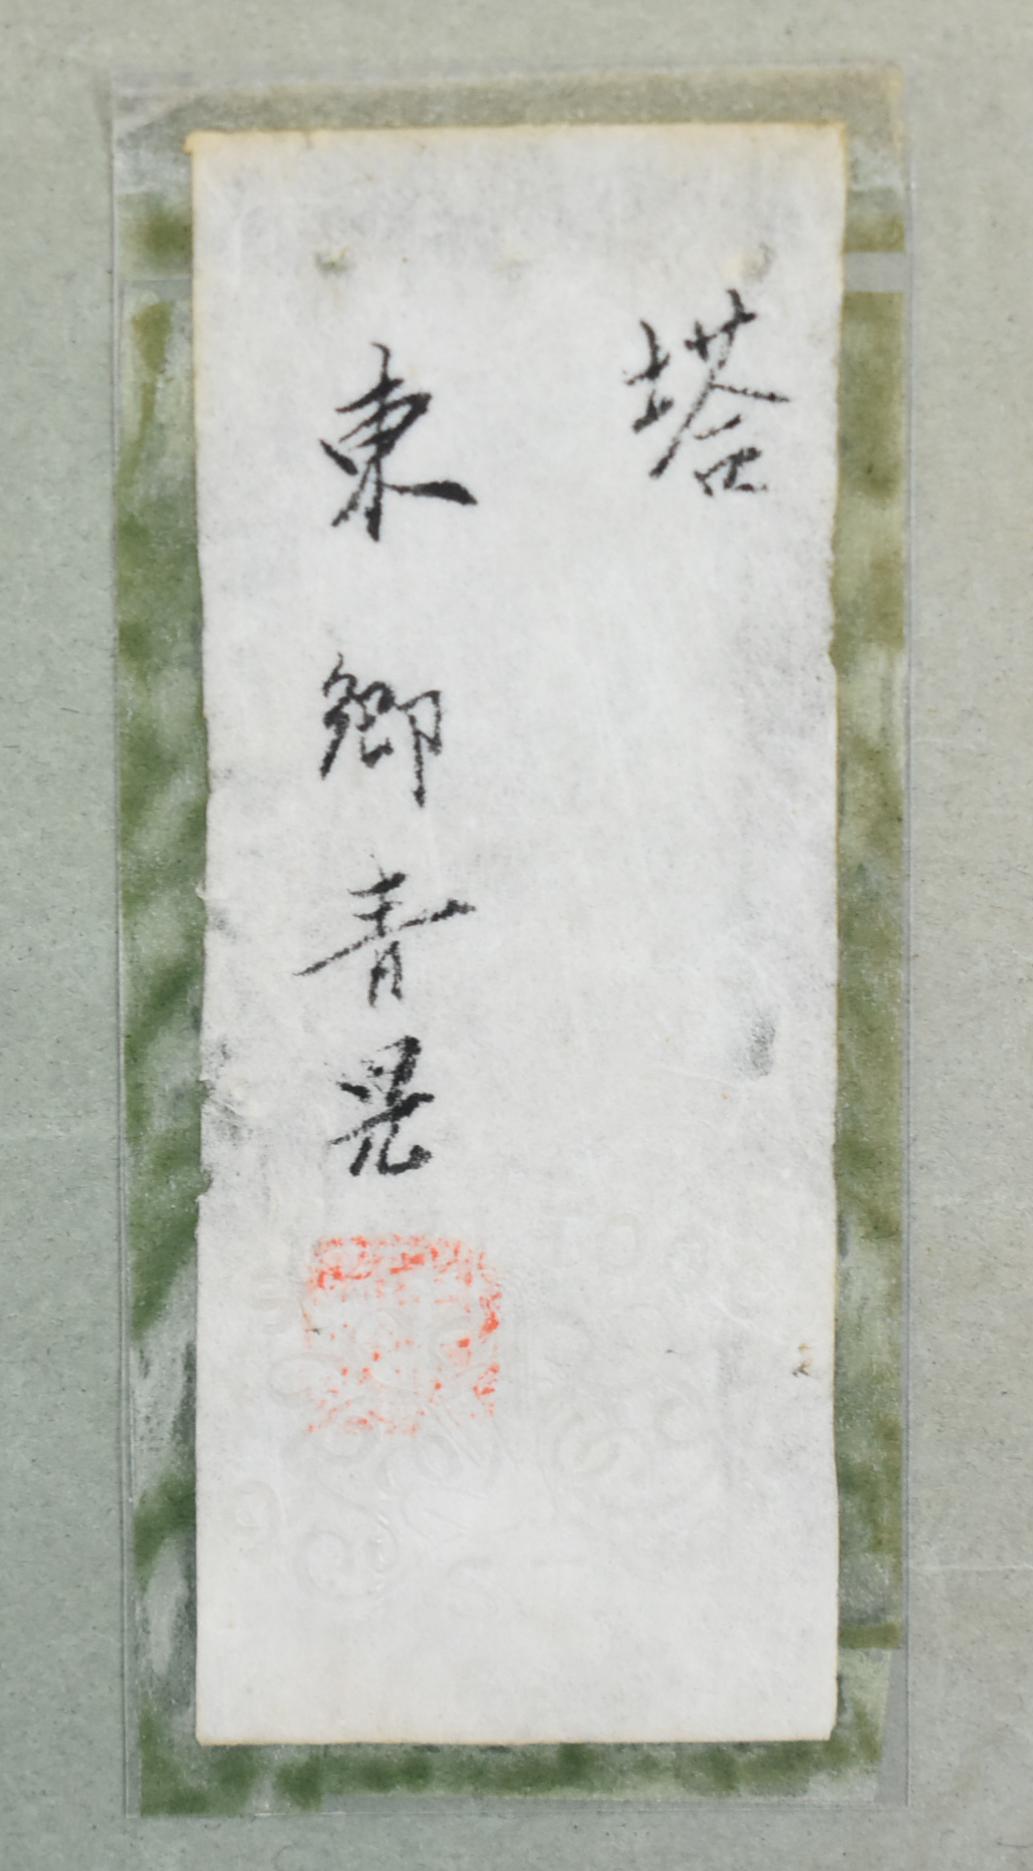 塔
東郷青児